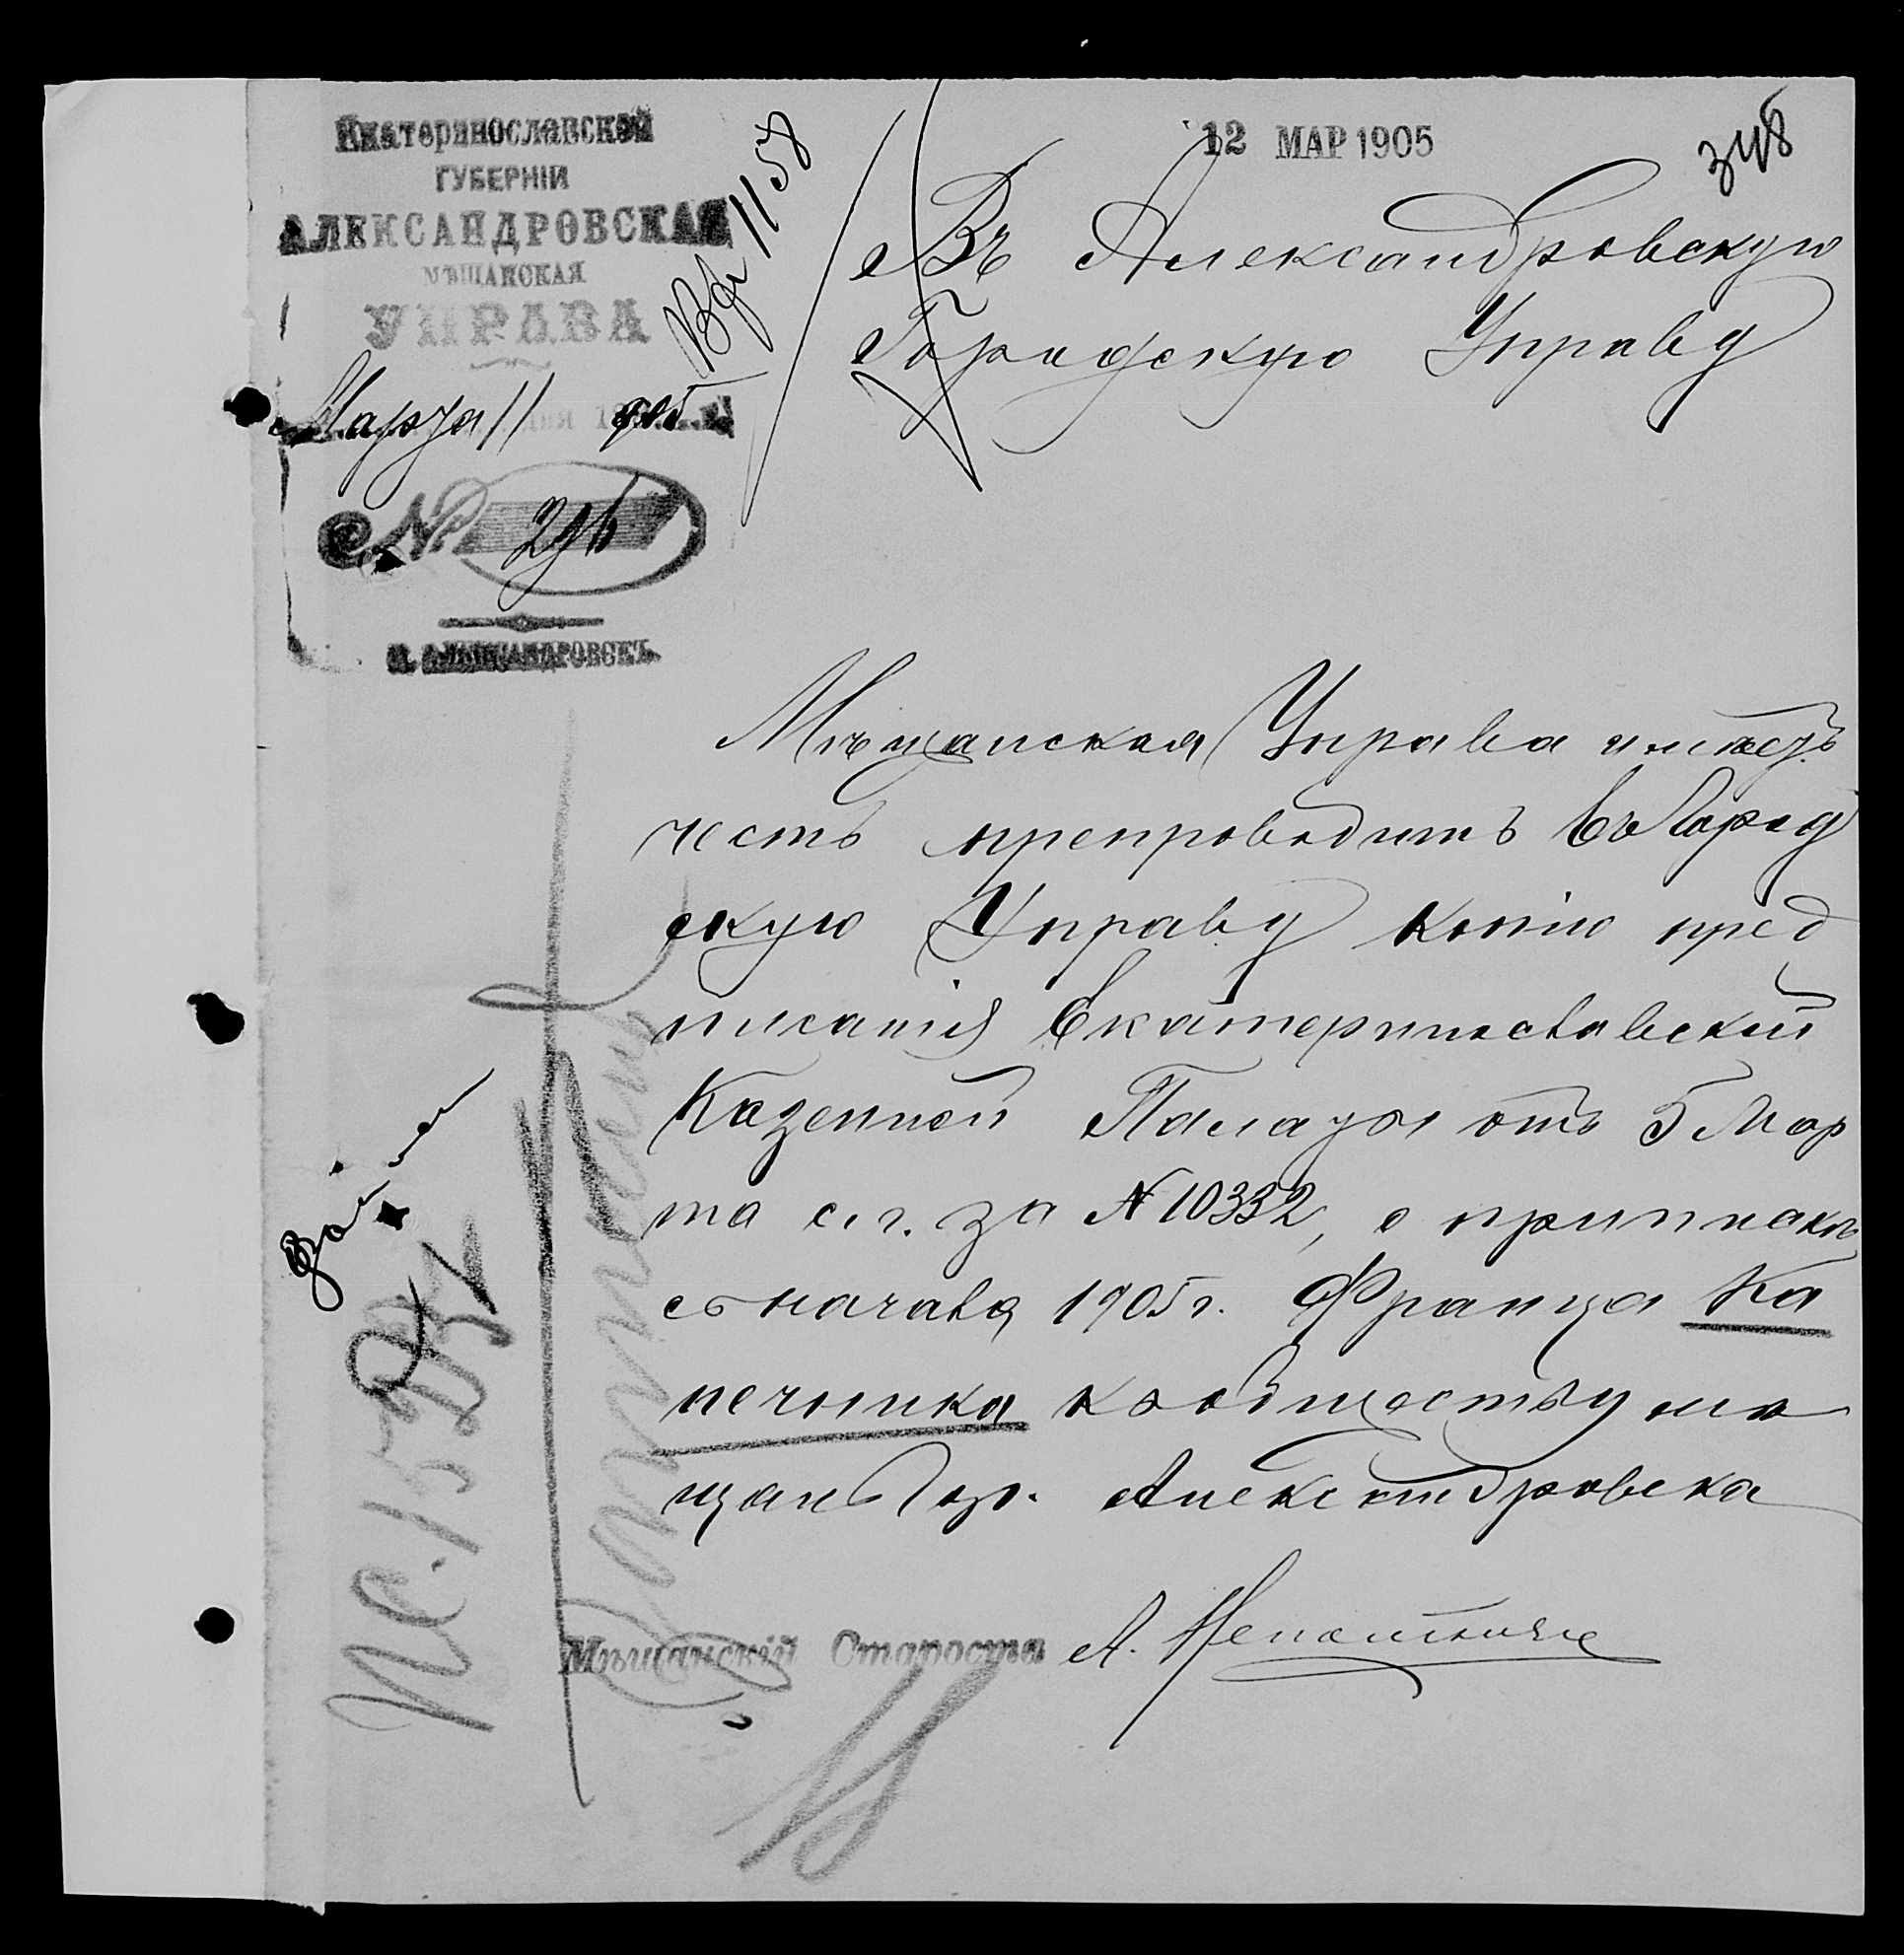 Екатеринославской
ГУБЕРНІИ
АЛЕКСАНДРОВСКАЯ
МѢЩАНСКАЯ
УПРАВА
Марта 11 дня 1905
№ 296
Г. АЛЕКСАНДРОВСКЪ
Вх 1158
12 МАР 1905
348
Въ Александровскую
Городскую Управу
Мѣщанская Управа имѣетъ
честь препроводить въ Город
скую Управу копію пред
писанія Екатеринославской
Казенной Палаты отъ 5 Мар
та с. г. за № 10332, о припискѣ
съ начала 1905 г. Франца Ка
печника къ обществу мѣ
щанъ гор. Александровска
Мѣщанскій Староста А.